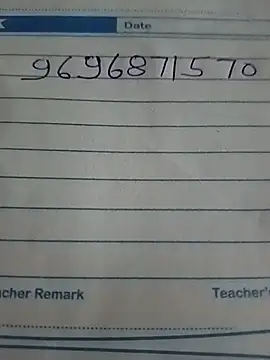 Date
9696871570
cher Remark
Teacher's